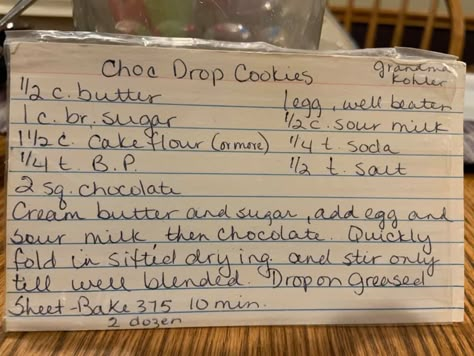 Choc Drop Cookies
Grandma
Kohler
1/2 c. butter
1 egg, well beaten
1 c. br. sugar
1/2 c. sour milk
1 1/2 c. Cake flour (or more)
1/4 t. soda
1/4 t. B.P.
1/2 t. salt
2 sq. chocolate
Cream butter and sugar, add egg and
sour milk then chocolate. Quickly
fold in sifted dry ing. and stir only
till well blended. Drop on greased
Sheet-Bake 375 10 min.
2 dozen